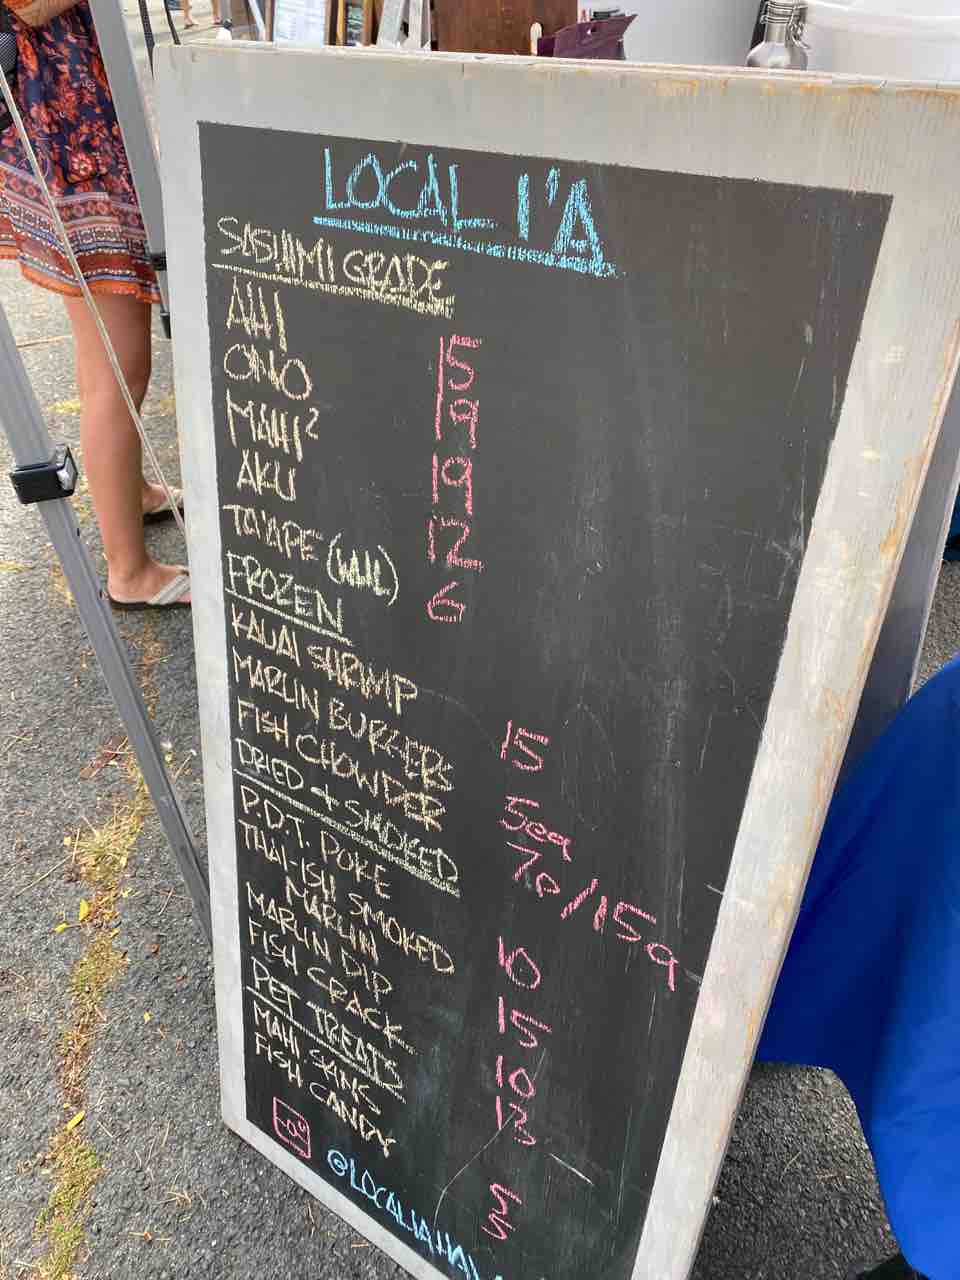 LOCAL I'A
SASHIMI GRADE
AHI 15
ONO 19
MAHI² 19
AKU 12
TA'APE (WHL) 6
FROZEN
KAUAI SHRIMP 15
MARLIN BURGERS 5ea
FISH CHOWDER 7p/15q
DRIED + SMOKED
P.D.T. POKE 10
THAI-ISH SMOKED
MARLIN 15
MARLIN DIP 10
FISH CRACK 13
PET TREATS
MAHI SKINS 5
FISH CANDY 5
@LOCALIAHAW